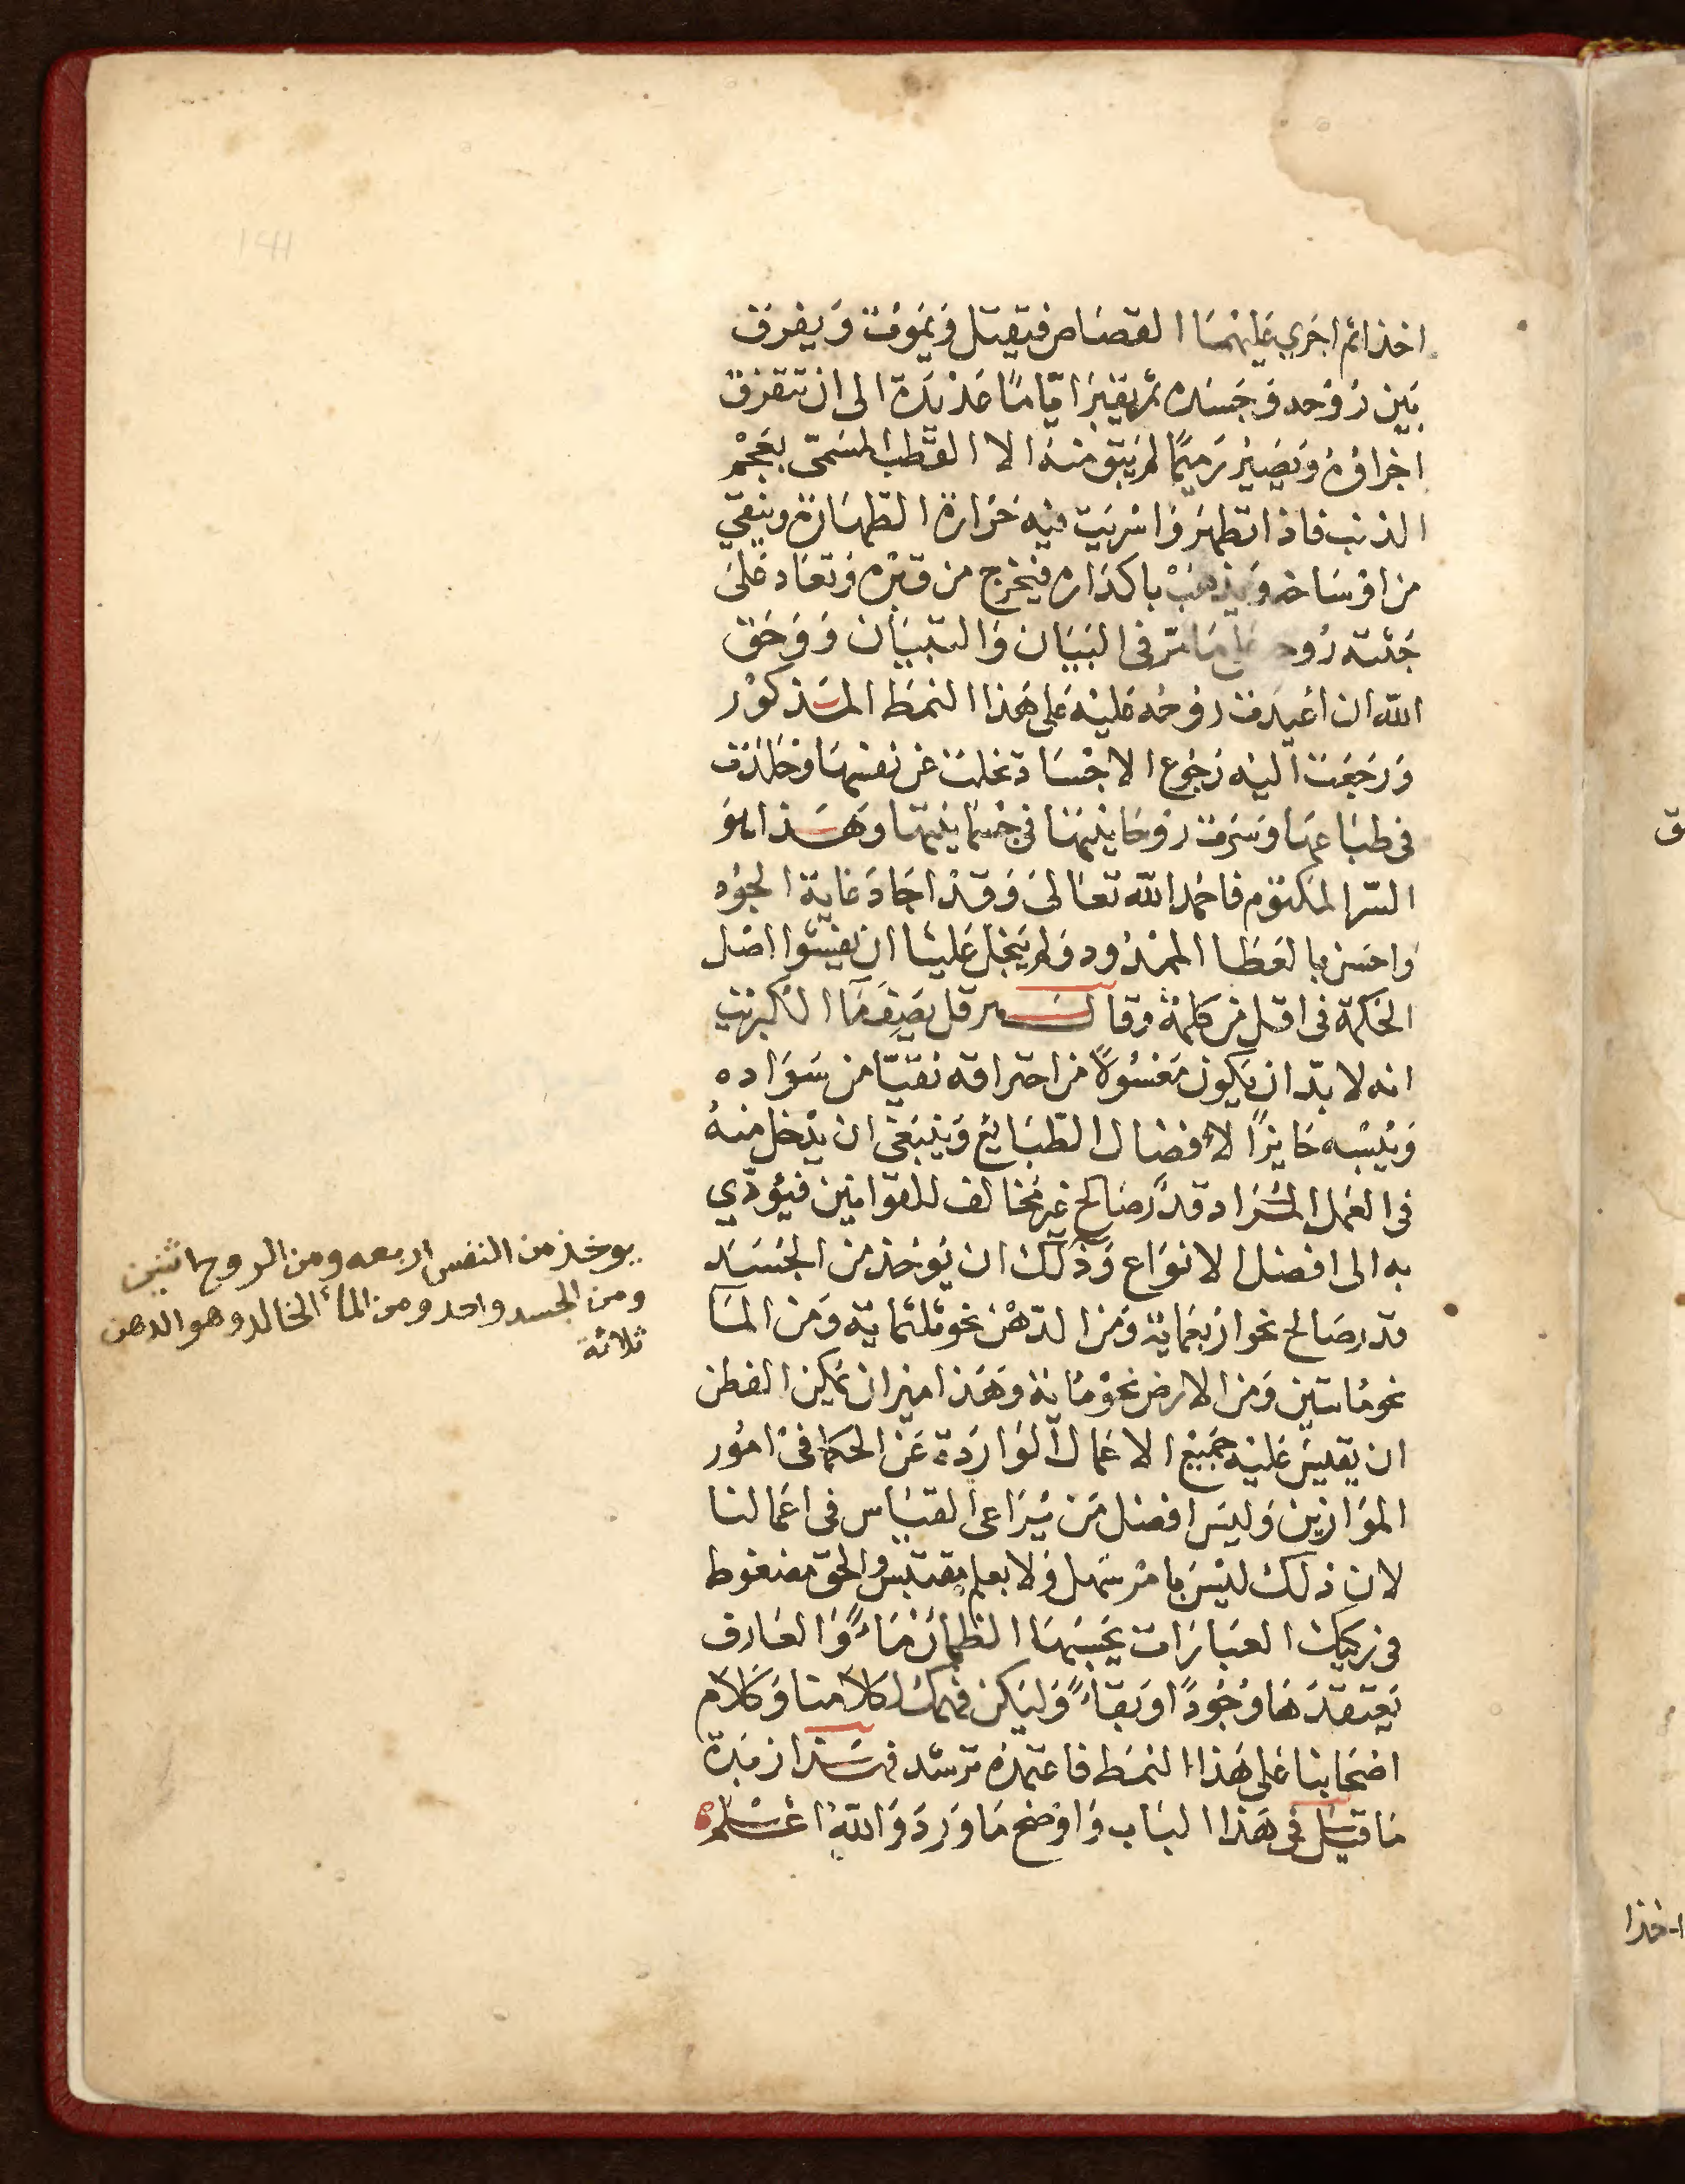 اخذا ثم اجري عليهما القصاص فيقتل وَيموت وَيفرق
بَين رُوحه وَجَسَده ثم يقبر ايّامًا عَديدَة الى ان تتفرق
اجزاؤه وَيَصير رَميمًا لم يبق منه الا القطب المسَمّى بعَجْم
الذنب فاذا تطهرَ وَاسْربَت فيه حَرَارة الطهَارة وينقي
من اوسَاخه وَيذهَبْ باكدَاره فيخرج من قبره وَتعَاد عَلىَ
جثته رُوحه على مَا مَرّ في البَيَان وَالتبيَان وَوَحَق
الله ان اعيدَت روحُه عَليْه عَلى هَذا النمَط المَذكوُر
وَرَجَعَت اليْه رجُوع الاجسَاد تخلت عن نفسهَا وَخلدَت
في طبَاعهَا وَسَرَت روحَانيتهَا في جسمَانيتهَا وَهَذا هوَ
السّر المكتوم فاحمد الله تعَالىَ وَقدْ اجَادَ غاية الجوُد
وَاحسَن بالعَطَا الممدُود وَلم يَبخل عَلينَا ان يفيدنا اصْل
الحكمة في اقل من كلمة وَقالــــ هرقل يَصِف مَا الكبريت
انه لا بدّ ان يكون مَغسُولاً من احتراقه نقيّا من سَوَاده
وَيُبْسه حَايزًا لافضَال الطبَايع وَينبَغي ان يدْخل منهُ
في العَمل المُرَاد قدْر صَالح غير مخالف للقوانين فيؤدّي
به الى افضل الانوَاع وَذلكَ ان يوخذ من الجَسَد
قدر صَالح نحو ارْبعمَاية وَمن الدّهْن نحو ثلثماية وَمن المَآ
نحو مَاتين وَمن الارض نحوْ مَاية وَهَذا ميزان يمكن الفطن
ان يقيسَ عَليه جَميع الاعمَال الوَاردَة عَن الحكمَا في امُور
المَوَازين وَليسَ افضل مَن يُرَاعى القيَاس في اعمَالنا
لان ذلك ليْسَ بامْر سَهل وَلا بعلم مقتبس وَالحق مضغوط
في ركيك العبَارَات يحسَبهَا الظمانُ مَاءً وَالعَارف
يَعتقدهَا وُجُودًا وَبقاءً وَليكن فهمك لكلامنا وَكلام
اصْحَابنا عَلى هَذا النمَط فاعتمدْه ترشد فهَذا زبدَة
مَا قيل في هَذا البَاب وَاوضح مَا وَرَدَ وَاللهُ اعْلم
يوخذ من النفس اربعه ومن الروح اثنين
ومن الجسد واحد ومن المآء الخالد وهو الدهن
ثلاثة
اخذا